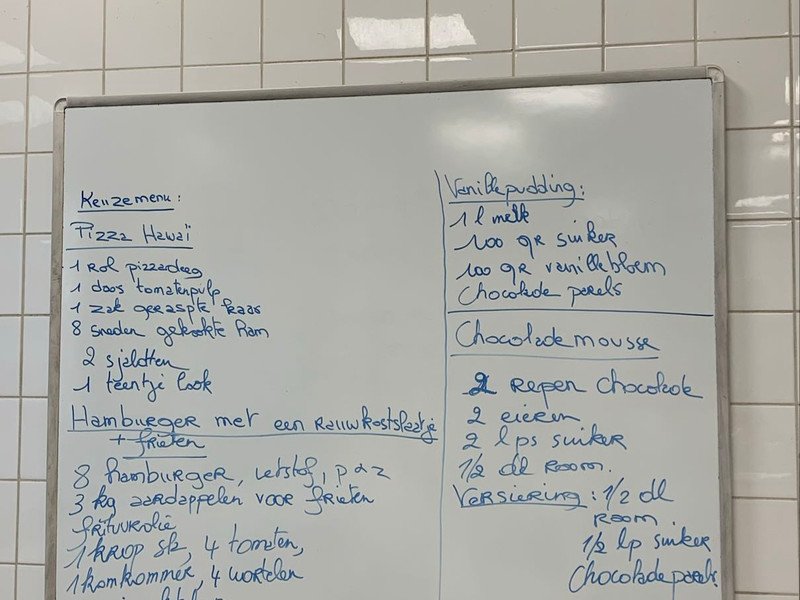 Keuzemenu:
Pizza Hawaï
1 rol pizzadeeg
1 doos tomatenpulp
1 zak geraspte kaas
8 sneden gekookte ham
2 sjalotten
1 teentje look
Hamburger met een rauwkostslaatje
+ frieten
8 hamburger, vetstof, p & z
3 kg aardappelen voor frieten
frituurolie
1 krop sla, 4 tomaten,
1 komkommer, 4 wortelen
Vanillepudding:
1 l melk
100 gr suiker
100 gr vanillebloem
Chocolade parels
Chocolademousse
2 repen chocolade
2 eieren
2 lps suiker
1/2 dl room.
Versiering: 1/2 dl
room
1/2 lp suiker
Chocoladeparels